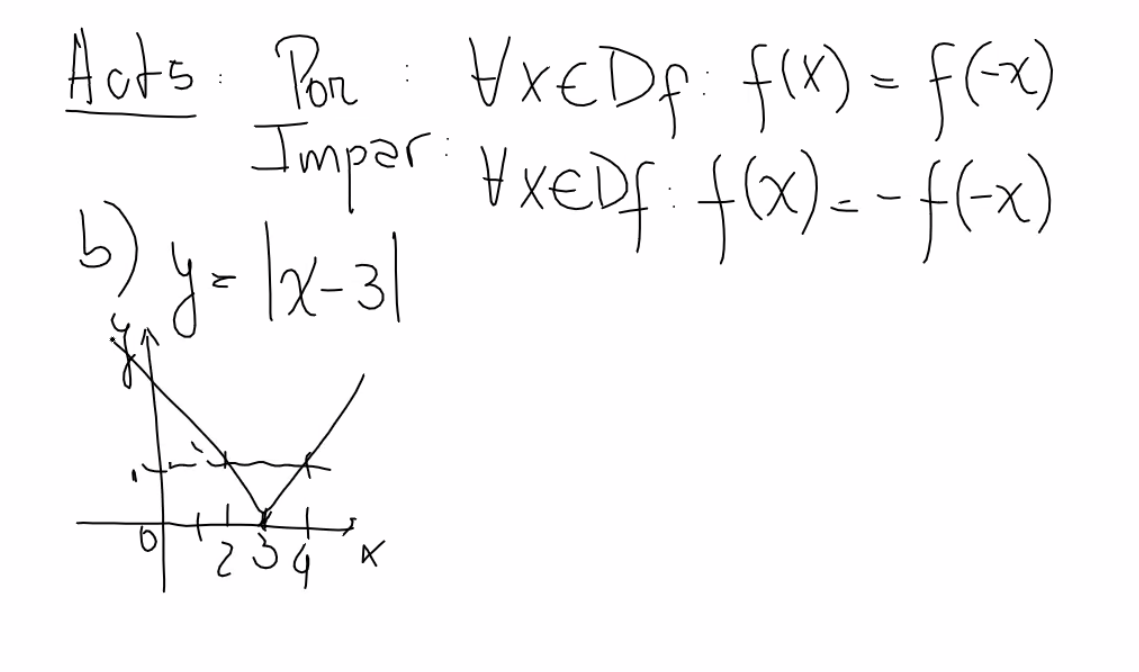 Act 5 : Par : ∀x∈Df: f(x) = f(-x)
Impar: ∀x∈Df: f(x) = -f(-x)
b) y = |x-3|
y
1
0 2 3 4 x